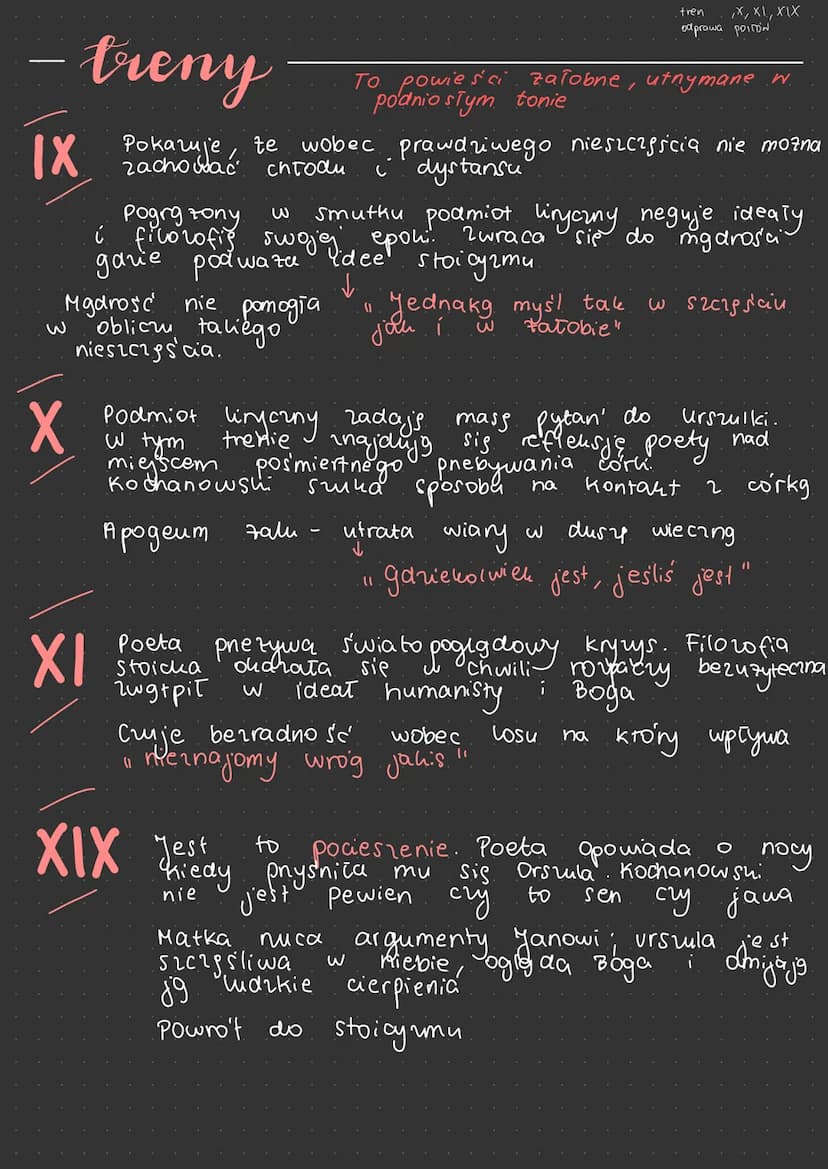 tren ,X, XI, XIX
odprawa posłów
treny
To powieści żałobne, utrzymane w
podniosłym tonie
IX
Pokazuje, że wobec prawdziwego nieszczęścia nie można
zachować chłodu i dystansu
Pogrążony w smutku podmiot liryczny neguje ideały
i filozofię swojej epoki. Zwraca się do mądrości
gdzie podważa idee stoicyzmu
Mądrość nie pomogła
w obliczu takiego
nieszczęścia.
↓
"Jednaką myśl tak w szczęściu
jak i w żałobie"
X
Podmiot liryczny zadaje masę pytań do Urszulki.
W tym trenie znajdują się refleksję poety nad
miejscem pośmiertnego przebywania córki.
Kochanowski szuka sposobu na kontakt z córką
Apogeum żalu - utrata wiary w duszę wieczną
↓
"gdziekolwiek jest, jeśliś jest"
XI
Poeta przeżywa światopoglądowy kryzys. Filozofia
stoicka okazała się w chwili rozpaczy bezużyteczna
zwątpił w ideał humanisty i Boga
Czuje bezradność wobec losu na który wpływa
"nieznajomy wróg jakis"
XIX
Jest to pocieszenie. Poeta opowiada o nocy
kiedy przyśniła mu się Orszula. Kochanowski
nie jest pewien czy to sen czy jawa
Matka rzuca argumenty Janowi; urszula jest
szczęśliwa w niebie, ogląda Boga i omijają
ją ludzkie cierpienia
Powrót do stoicyzmu